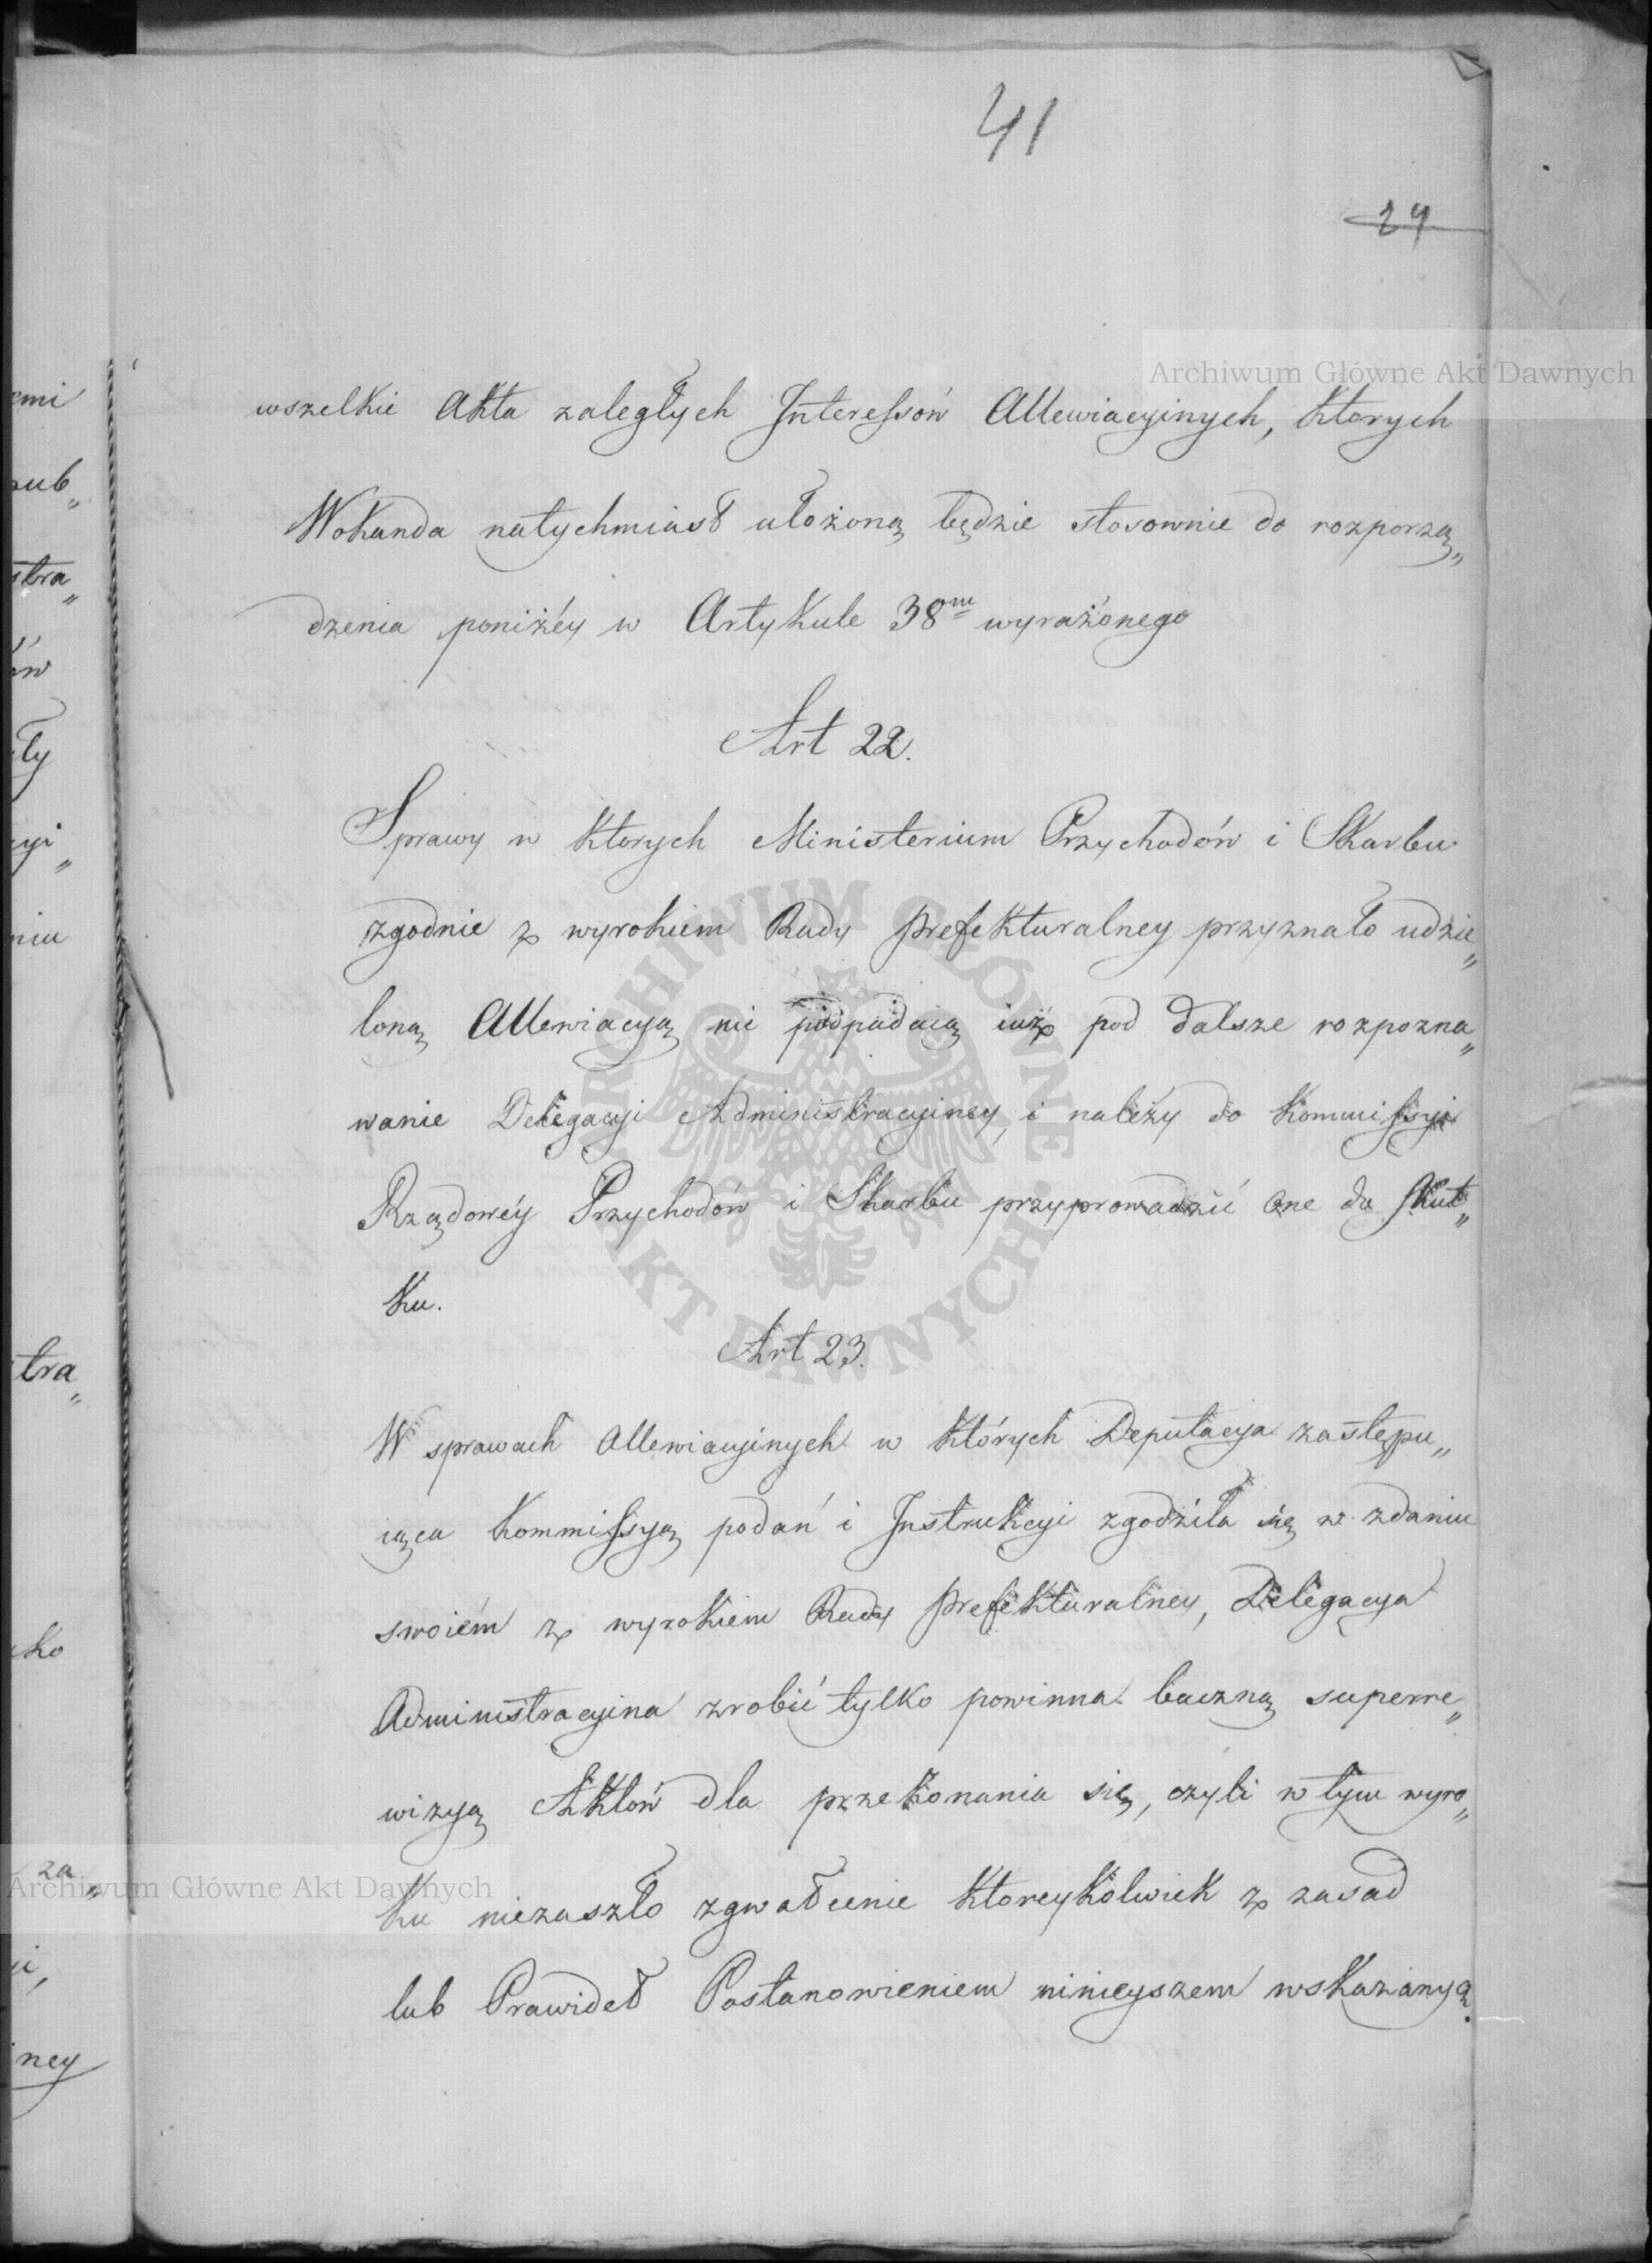 41
29
Archiwum Główne Akt Dawnych
wszelkie Akta zaległych Interessów Allewiacyinych, których
Wokanda natychmiast ułożoną będzie stosownie do rozporzą„
dzenia poniżéy w Artykule 38m wyrażonego
Art 22.
Sprawy w których Ministerium Przychodów i Skarbu
zgodnie z wyrokiem Rady Prefekturalney przyznało udzie„
loną Allewiacyą nie podpadaią iuż pod dalsze rozpozna„
wanie Delegacyi Administracyiney, i należy do Kommissyi
Rządowéy Przychodów i Skarbu przyprowadzić One do Skut„
ku.
Art 23.
W sprawach Allewiacyinych w których Deputacya zastępu„
iąca Kommissyą podań i Instrukcyi zgodziła się w zdaniu
swoiém z wyrokiem Rady Prefekturalney, Delegacya
Administracyina zrobić tylko powinna baczną superre„
wizyą Aktów dla przekonania się, czyli w tym wyro„
ku niezaszło zgwałcenie któreykolwiek z zasad
lub Prawideł Postanowieniem ninieyszem wskazanych.
Archiwum Główne Akt Dawnych
ARCHIWUM GŁÓWNE
AKT DAWNYCH
emi
stra„
ów
ły
niu
tra„
ko
za„
ney